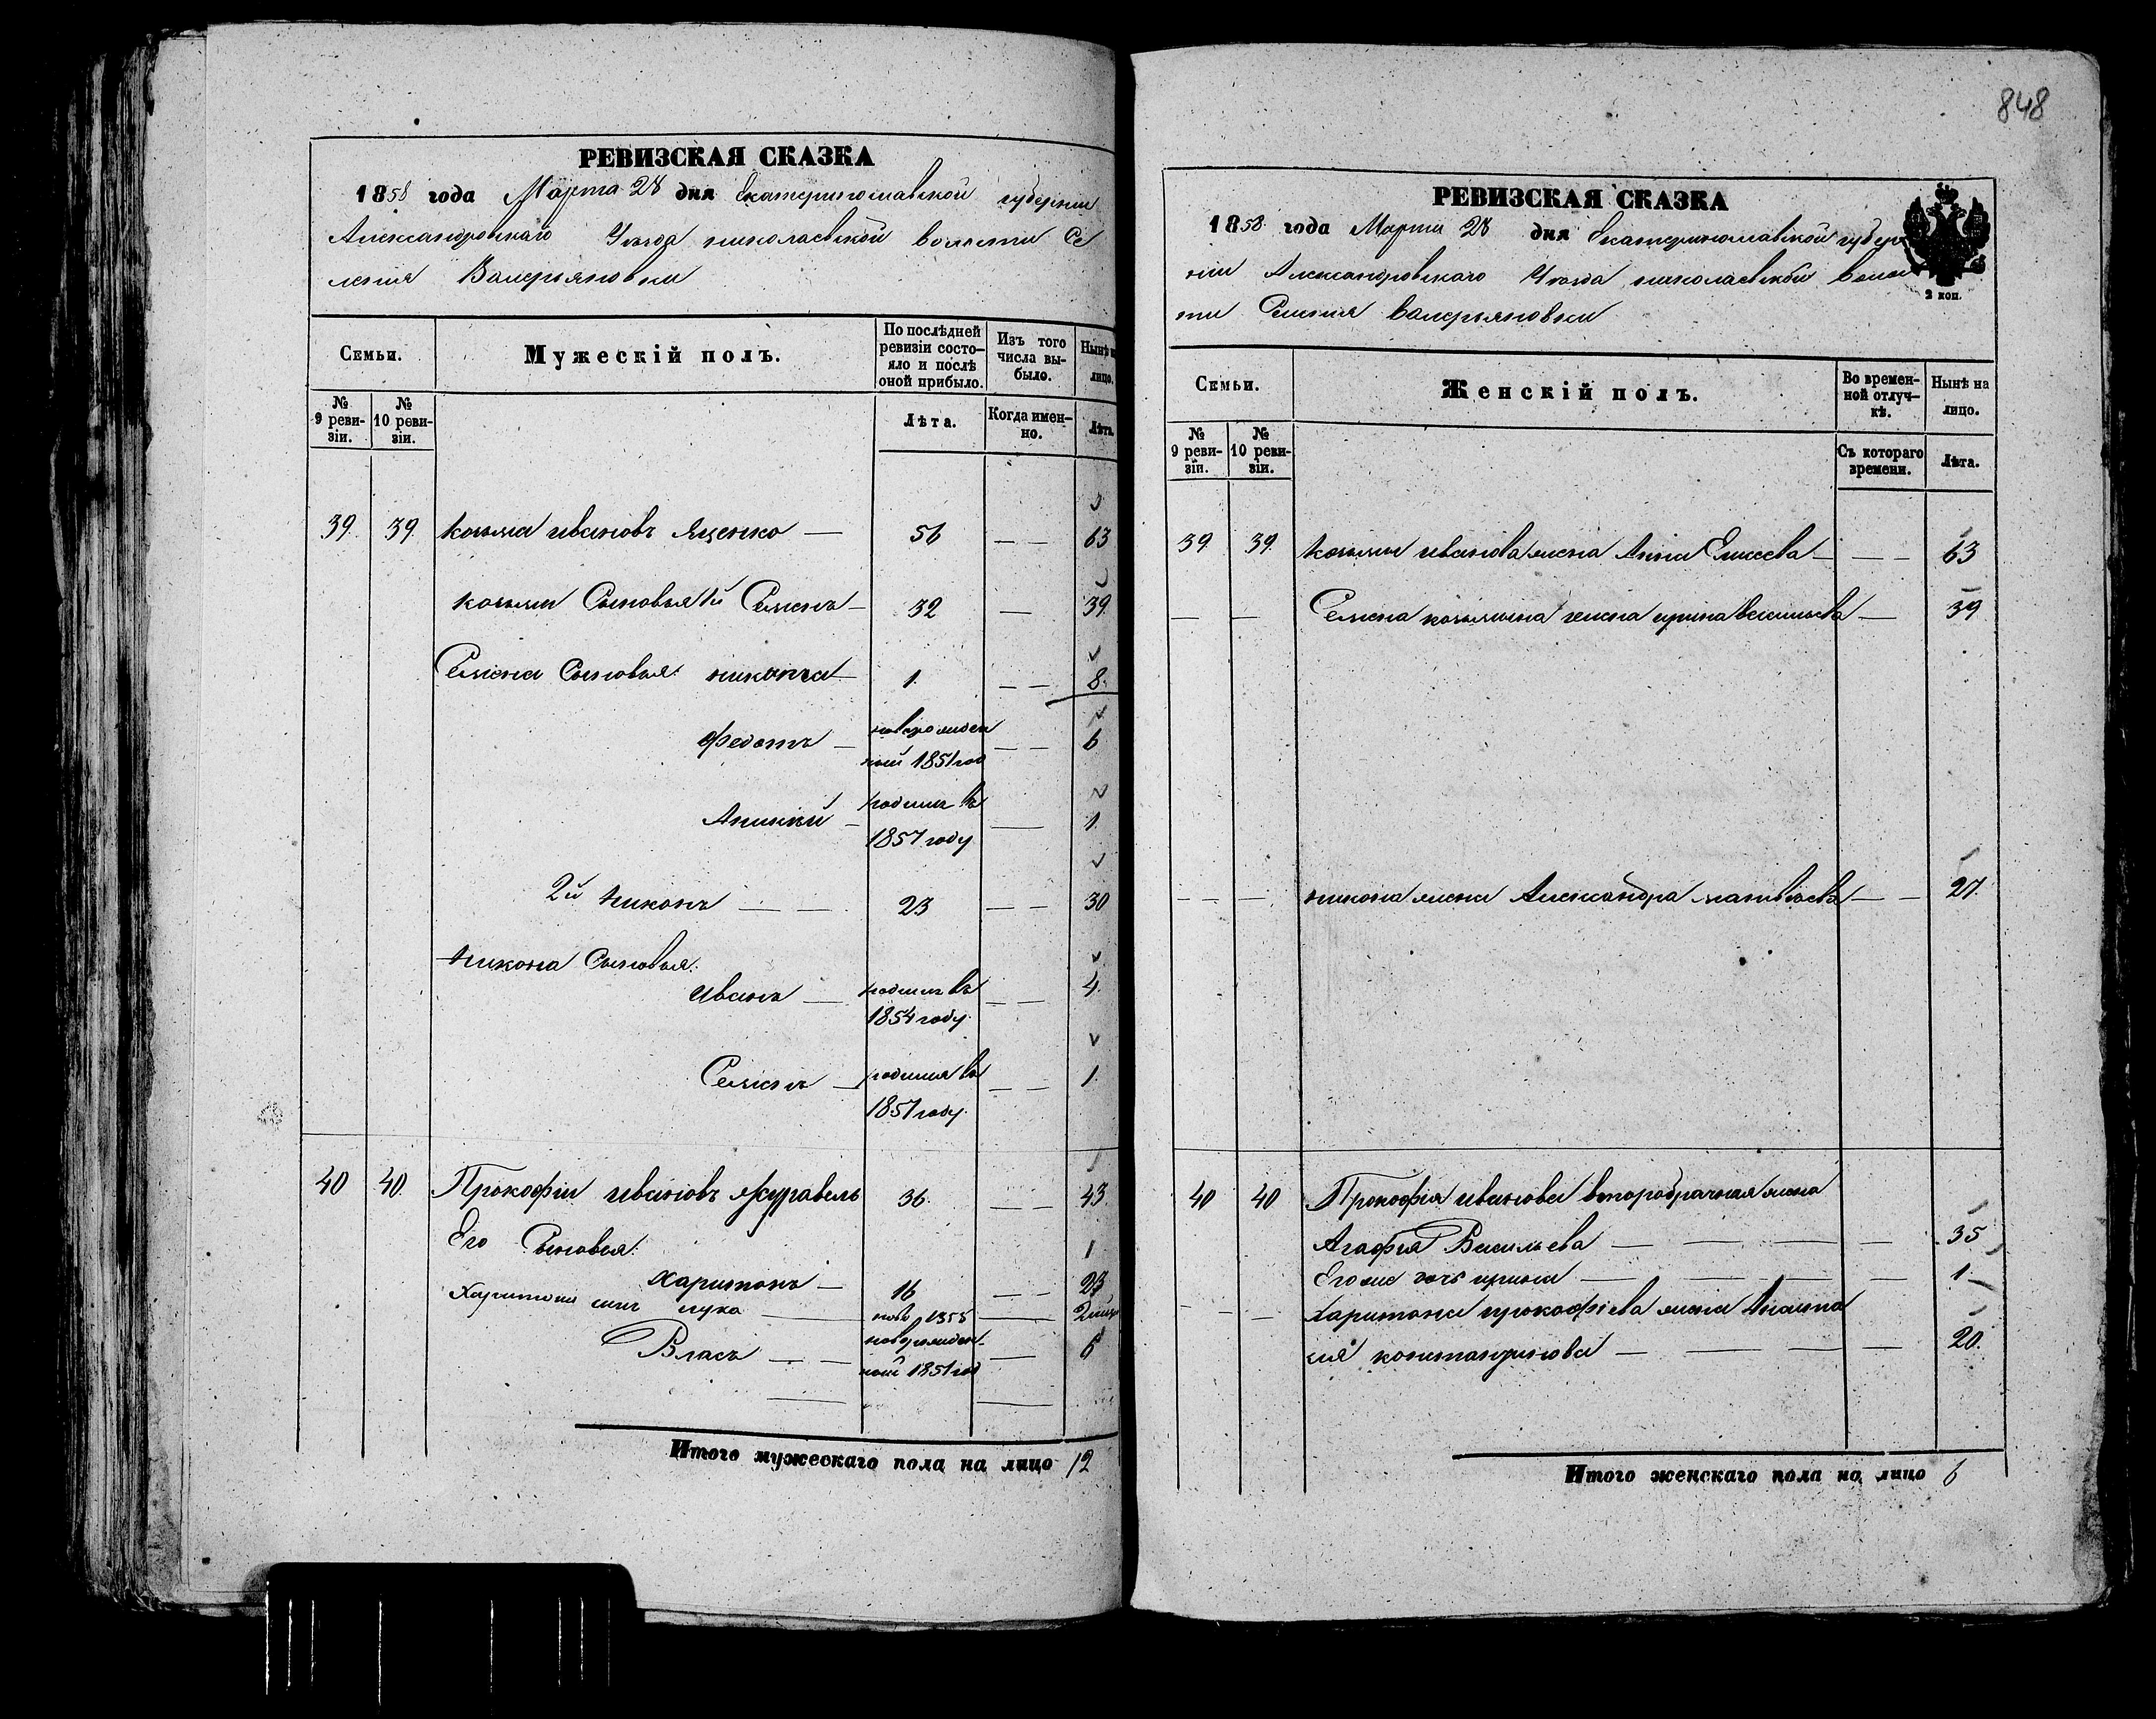 848
РЕВИЗСКАЯ СКАЗКА
1858 года Марта 28 дня Екатеринославской губернии
Александровскаго Уезда николаевской волости Се
ления Валерьяновки
Семьи.
Мужескій полъ.
По послѣдней
ревизіи состо-
яло и послѣ
оной прибыло.
Изъ того
числа вы-
было.
Нынѣ
лицо.
№
9 реви-
зіи.
№
10 реви-
зіи.
Лѣта.
Когда имен-
но.
Лѣта.
39. 39. козьма ивановъ Яценко — 56 — — 63
козьмы Сыновья 1й Семенъ — 32 — 39.
Семена Сыновья: никита — 1. — — 8.
Федотъ — новорожден — — 6
ный 1851 год
родился въ — 1.
1857 году
2й никонъ — — 23 — — 30
никона Сыновья:
иванъ — родился въ — — 4.
1854 году.
Семенъ — родился въ — — 1.
1857 году.
40 40. Прокофій ивановъ Журавель 36. — — 43.
Его Сыновья: 1
Харитонъ — 16 — — 23
Харитона сынъ лука — 1855 —
Власъ — — новорожден- — 6
ный 1851 год
Итого мужескаго пола на лицо 12
РЕВИЗСКАЯ СКАЗКА
1858 года Марта 28 дня Екатеринославской губер
ніи Александровскаго Уезда николаевской волос
ти Селения валерьяновки
2 коп.
Семьи.
Женскій полъ.
Во времен-
ной отлуч-
кѣ.
Нынѣ на
лицо.
№
9 реви-
зіи.
№
10 реви-
зіи.
Съ котораго
времени.
Лѣта.
39. 39. козьмы иванова жена Анна Елисеева — — — 63
— — Семена козьмина жена ирина васильева — 39
— — — никона жена Александра матвѣева — — 27.
40 40 Прокофія иванова второбрачная жена
Агафия Васильева — — — — 35
Его же дочь ирина — — — — 1.
— — Харитона прокофіева жена Анаста
сия константинова — — — — 20.
Итого женскаго пола на лицо 6